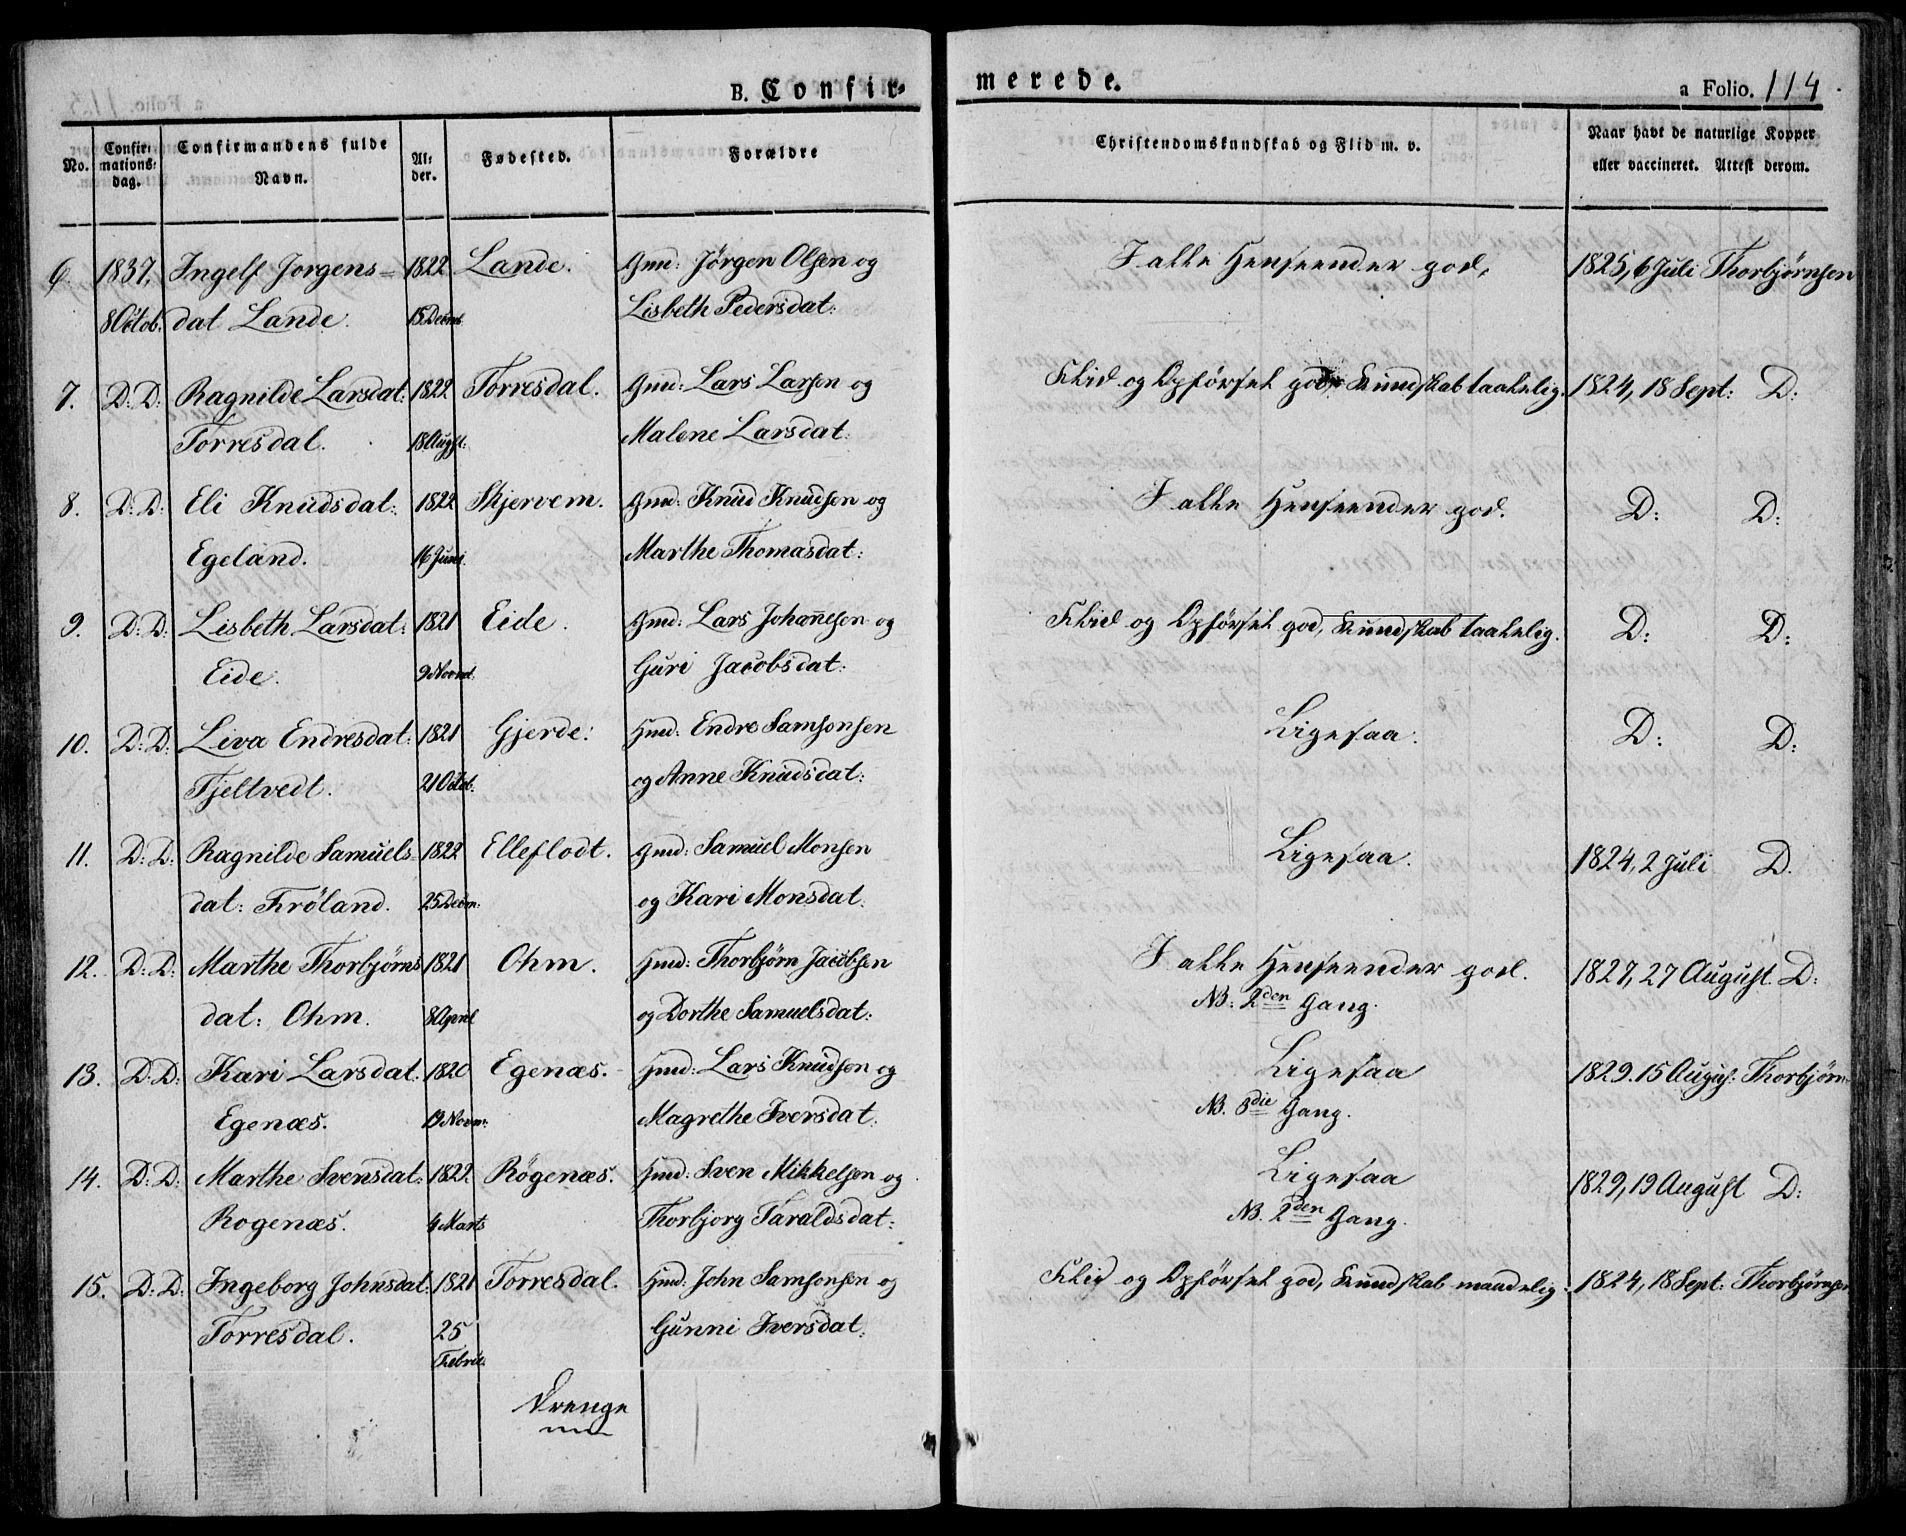 B. Confir- merede. a Folio. 114.
No. Confir-mations-dag. Confirmandens fulde Navn. Al-der. Fødested. Forældre Christendomskundskab og Flid m. v. Naar havt de naturlige Kopper eller vaccineret. Attest derom.
6. 1837, Ingelf Jorgens- 1822 Lande. Gmd: Jørgen Olsen og I alle Henseender god, 1825, 6 Juli Thorbjørnsen
8 Octob. dat Lande. 15 Decmb Lisbeth Pedersdat:
7. D: D: Ragnilde Larsdat: 1822 Torresdal. Gmd: Lars Larsen og Flid og Opførsel god, Kundskab taalelig. 1824, 18 Sept: D:
Torresdal. 18 Augst: Malene Larsdat:
8. D: D: Eli Knudsdat: 1822 Skjervem. Gmd: Knud Knudsen og I alle Henseender god. D: D:
Egeland. 16 Juni. Marthe Thomasdat:
9. D: D: Lisbeth Larsdat: 1821 Eide. Gmd: Lars Johannesen og Flid og Opførsel god, Kundskab taalelig. D: D:
Eide. 9 Novmd. Guri Jacobsdat:
10. D: D: Liva Endresdat: 1821 Gjerde: Hmd: Endre Samsonsen Ligesaa. D: D:
Tjeltvedt. 21 Octob. og Anne Knudsdat:
11. D: D: Ragnilde Samuels- 1822 Elleflodt. Gmd: Samuel Monsen Ligesaa. 1824, 2 Juli D.
dat: Frøland. 25 Decm: og Kari Monsdat:
12. D: D: Marthe Thorbjørns 1821 Ohm. Hmd: Thorbjørn Jacobsen I alle Henseender god. 1827, 27 August. D:
dat: Ohm. 8 April og Dorthe Samuelsdat: NB: 2den Gang.
13. D: D: Kari Larsdat: 1820 Egenæs. Hmd: Lars Knudsen og Ligesaa 1829. 15 Augus: Thorbjørn-
Egenæs. 19 Novm: Magrethe Iversdat: NB. 3die Gang.
14. D: D: Marthe Svensdat: 1822 Røgenæs. Hmd: Sven Mikkelsen og Ligesaa 1829, 19 August D:
Rogenæs. 4 Marts Thorbjorg Taraldsdat: NB. 2den Gang.
15. D: D: Ingeborg Johnsdat: 1821 Torresdal. Hmd: John Samsonsen og Flid og Opførsel god, Kundskab maadelig. 1824, 18 Sept: Thorbjørnsen
Torresdal. 25 Gunni Iversdat:
Febru.
Drenge